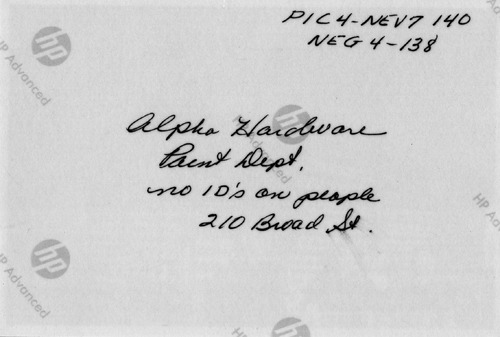 PIC 4-NEV7 140
NEG 4-138
Alpha Hardware
Paint Dept.
no ID's on people
210 Broad St.
hp
HP Advanced
hp
hp
HP Advanced
hp
HP Advanced
hp